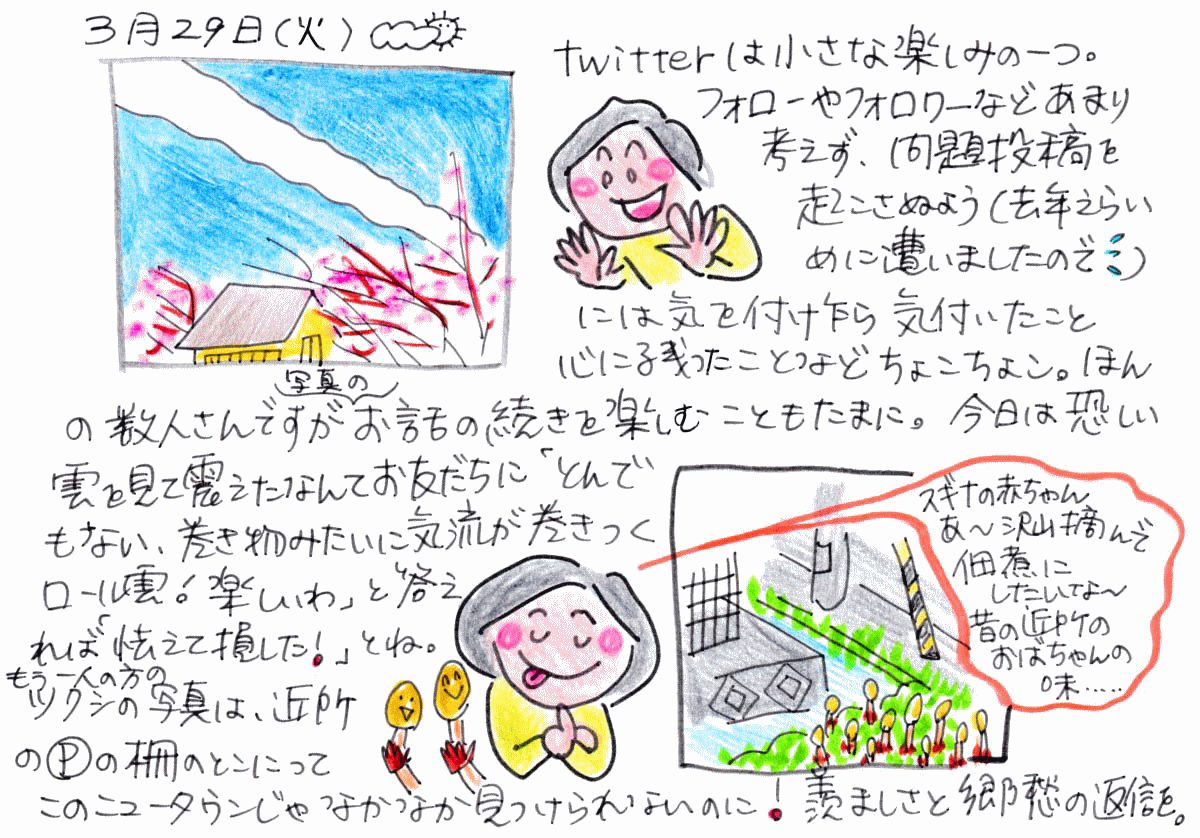 3月29日(火)
twitterは小さな楽しみの一つ。
フォローやフォロワーなどあまり
考えず、問題投稿を
起こさぬよう(去年えらい
めに遭いましたので)
には気を付け乍ら気付いたこと
心に残ったことなどちょこちょこ。ほん
写真の
の数人さんですがお話の続きを楽しむこともたまに。今日は恐しい
雲を見て震えたなんてお友だちに「とんで
もない、巻き物みたいに気流が巻きつく
ロール雲!楽しいわ」と答え
れば「怯えて損した!」とね。
もう一人の方の
ツクシの写真は、近所
のⓅの柵のとこにって
このニュータウンじゃなかなか見つけられないのに!羨ましさと郷愁の返信を。
スギナの赤ちゃん
あ〜沢山摘んで
佃煮に
したいてな〜
昔の近所の
おばちゃんの
味……